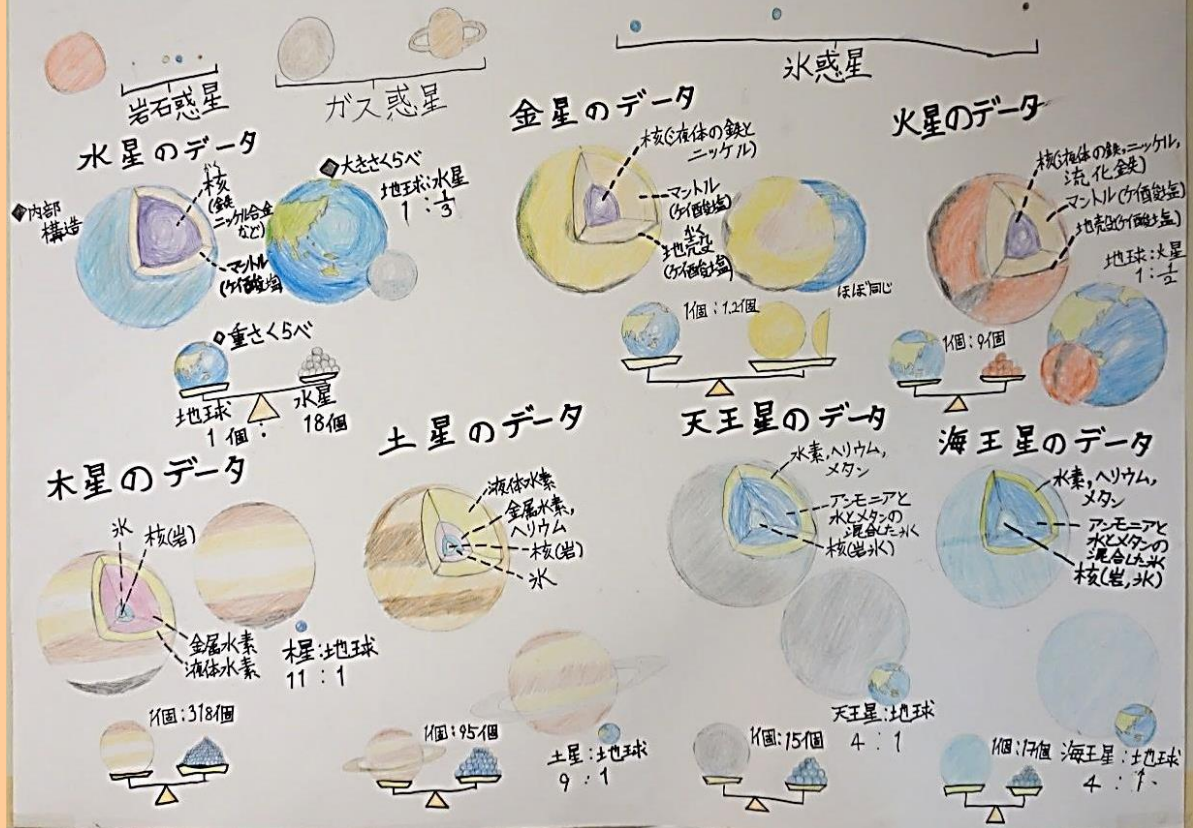 岩石惑星
ガス惑星
氷惑星
水星のデータ
◆内部
構造
かく
核
(鉄
ニッケル合金
など)
マントル
(ケイ酸塩)
◆大きさくらべ
地球:水星
1:1/3
◇重さくらべ
地球
水星
1個:18個
金星のデータ
核(液体の鉄と
ニッケル)
マントル
(ケイ酸塩)
地殻
(ケイ酸塩)
ほぼ同じ
1個:1.2個
火星のデータ
核(液体の鉄,ニッケル,
流化鉄)
マントル(ケイ酸塩)
地殻(ケイ酸塩)
地球:火星
1:1/2
1個:9個
木星のデータ
氷
核(岩)
金属水素
液体水素
木星:地球
11:1
1個:318個
土星のデータ
液体水素
金属水素,
ヘリウム
核(岩)
氷
土星:地球
9:1
1個:95個
天王星のデータ
水素,ヘリウム,
メタン
アンモニアと
水とメタンの
混合した氷
核(岩氷)
天王星:地球
4:1
1個:15個
海王星のデータ
水素,ヘリウム,
メタン
アンモニアと
水とメタンの
混合した氷
核(岩,氷)
海王星:地球
4:1
1個:17個